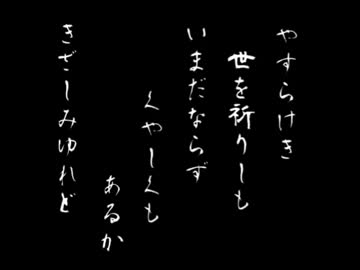 やすらけき
世を祈りしも
いまだならず
くやしくも
あるか
きざしみゆれど